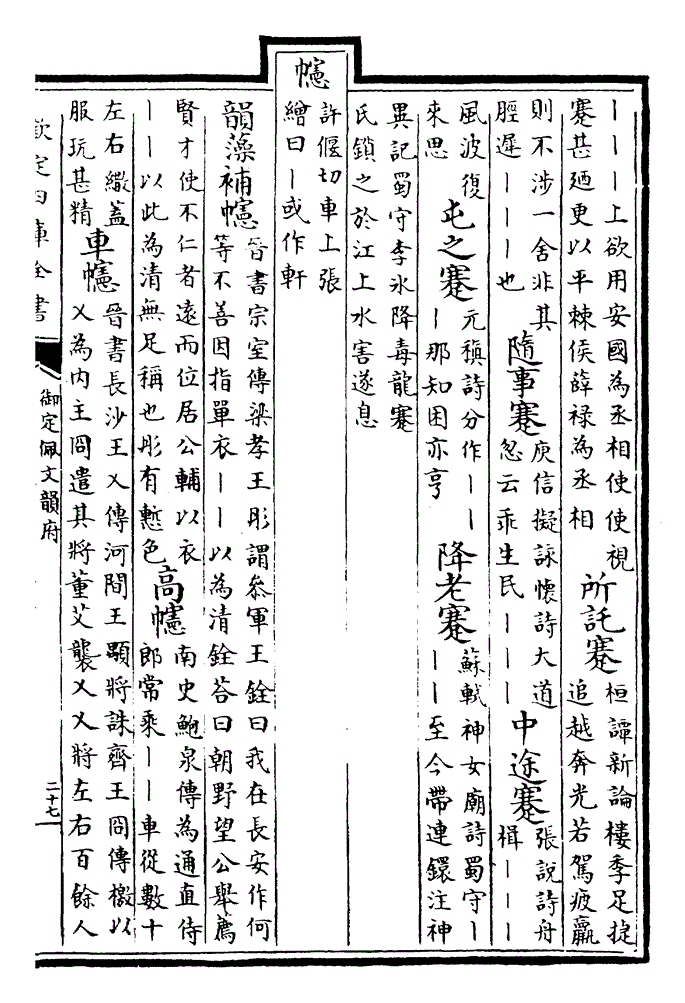 ｜｜｜上欲用安國為丞相使使視
蹇甚廼更以平棘侯薛禄為丞相
所託蹇
桓譚新論樓季足㨗
追越奔光若駕疲羸
則不涉一舍非其
脛遲｜｜｜也
隨事蹇
庾信擬詠懷詩大道
忽云乖生民｜｜｜
中途蹇
張說詩舟
楫｜｜｜｜
風波復
來思
屯之蹇
元稹詩分作｜｜
｜那知困亦亨
降老蹇
蘇軾神女廟詩蜀守｜
｜｜至今帶連鐶注神
異記蜀守李氷降毒龍蹇
氏鎖之於江上水害遂息
幰
許偃切車上張
繒曰｜或作軒
韻藻補幰
晉書宗室傳梁孝王肜謂叅軍王銓曰我在長安作何
等不善因指單衣｜｜以為清銓荅曰朝野望公舉薦
賢才使不仁者逺而位居公輔以衣
｜｜以此為清無足稱也肜有慙色
高幰
南史鮑泉傳為通直侍
郎常乘｜｜車從數十
左右繖蓋
服玩甚精
車幰
晉書長沙王乂傳河間王顒將誅齊王冏傳檄以
乂為内主冏遣其將董艾襲乂乂將左右百餘人
欽定四庫全書
御定佩文韻府
二十七